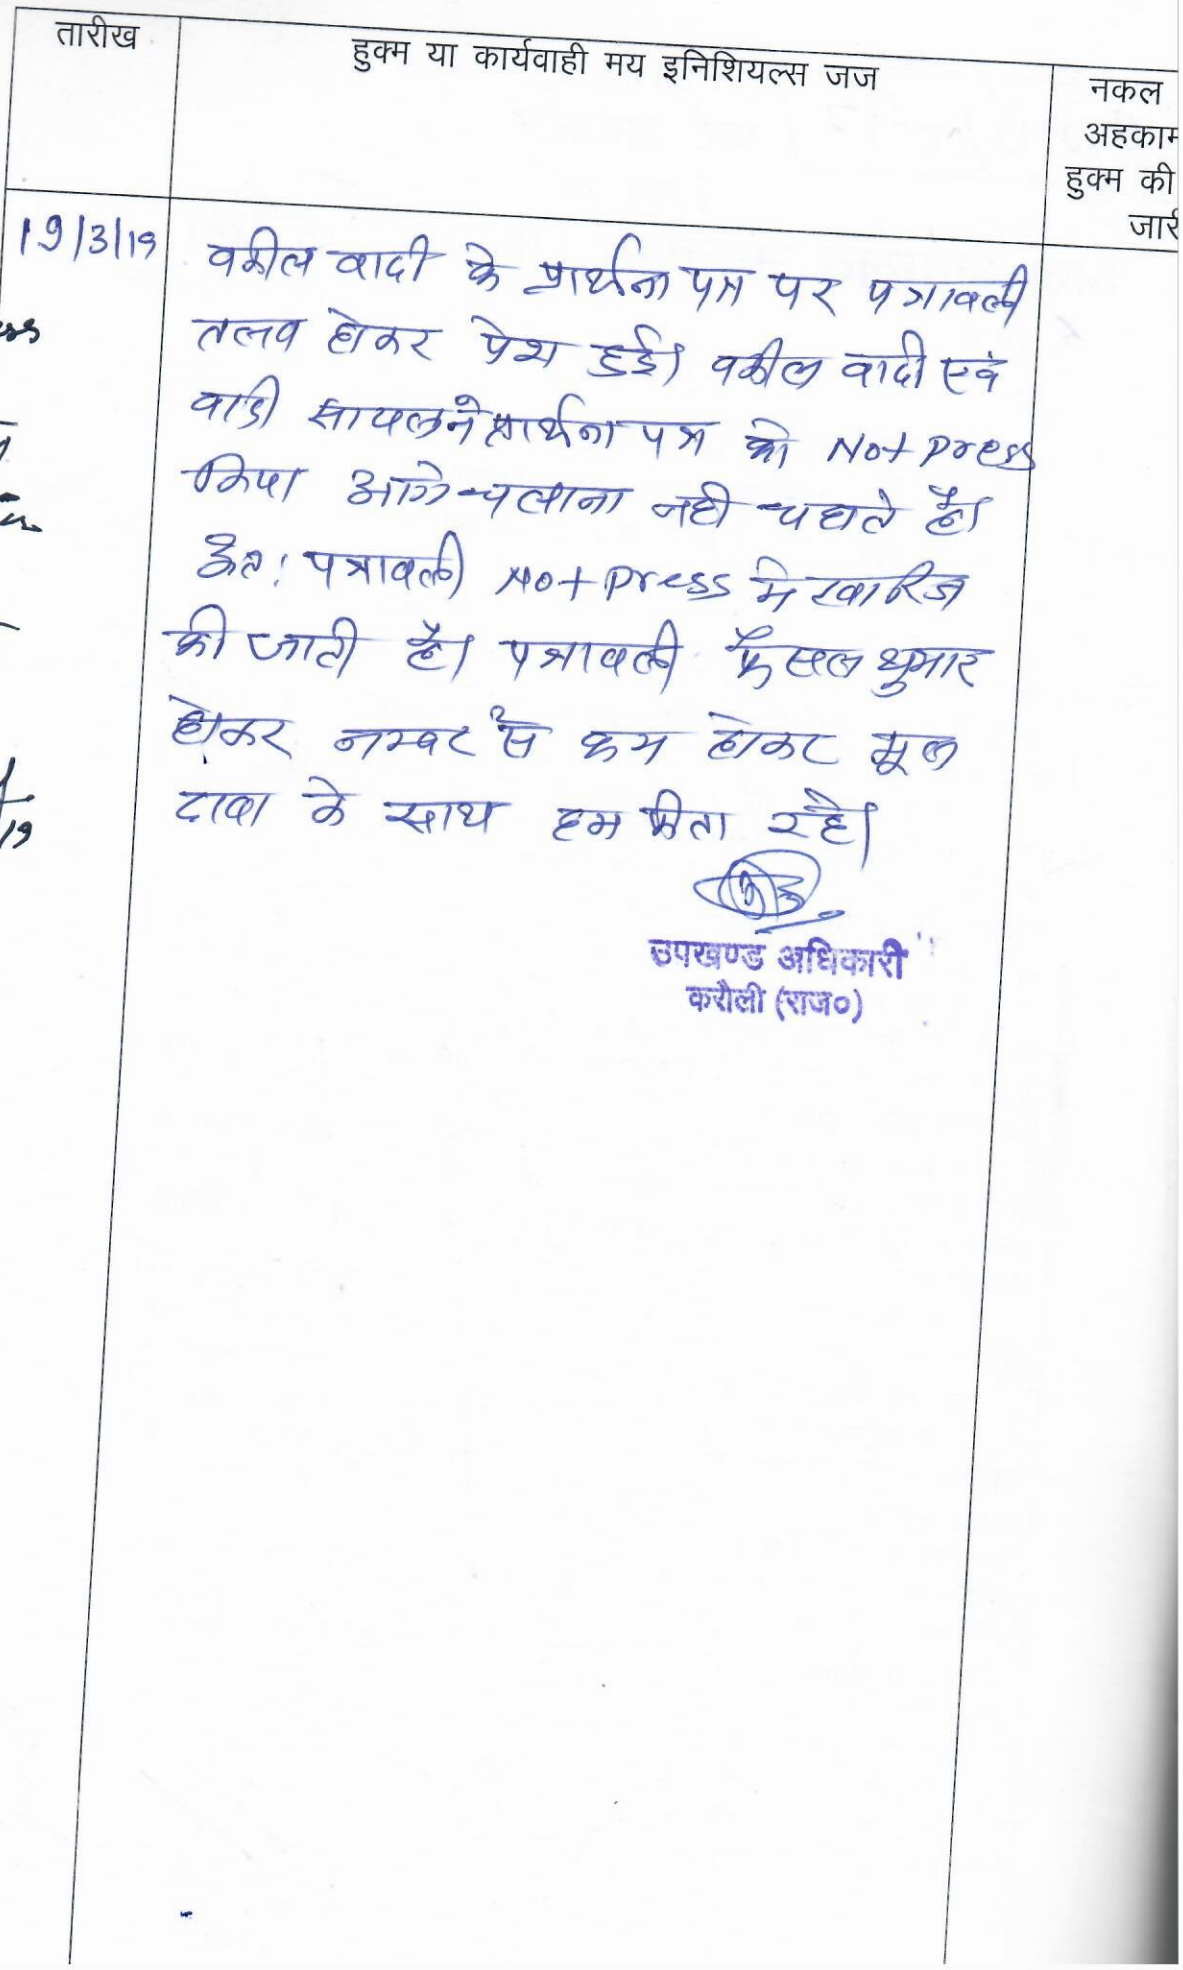 तारीख
हुक्म या कार्यवाही मय इनिशियल्स जज
नकल
अहकाम
हुक्म की
जारी
19/3/19
वकील वादी के प्रार्थना पत्र पर पत्रावली
तलव होकर पेश हुई। वकील वादी एवं
वादी सायलने प्रार्थना पत्र को Not press
किया आगे चलाना नही चहाते है।
अत: पत्रावली Not press मे खारिज
की जाती है। पत्रावली फैसल शुमार
होकर नम्बर से कम होकर मूल
दावा के साथ हम फीता रहे।
उपखण्ड अधिकारी
करौली (राज०)